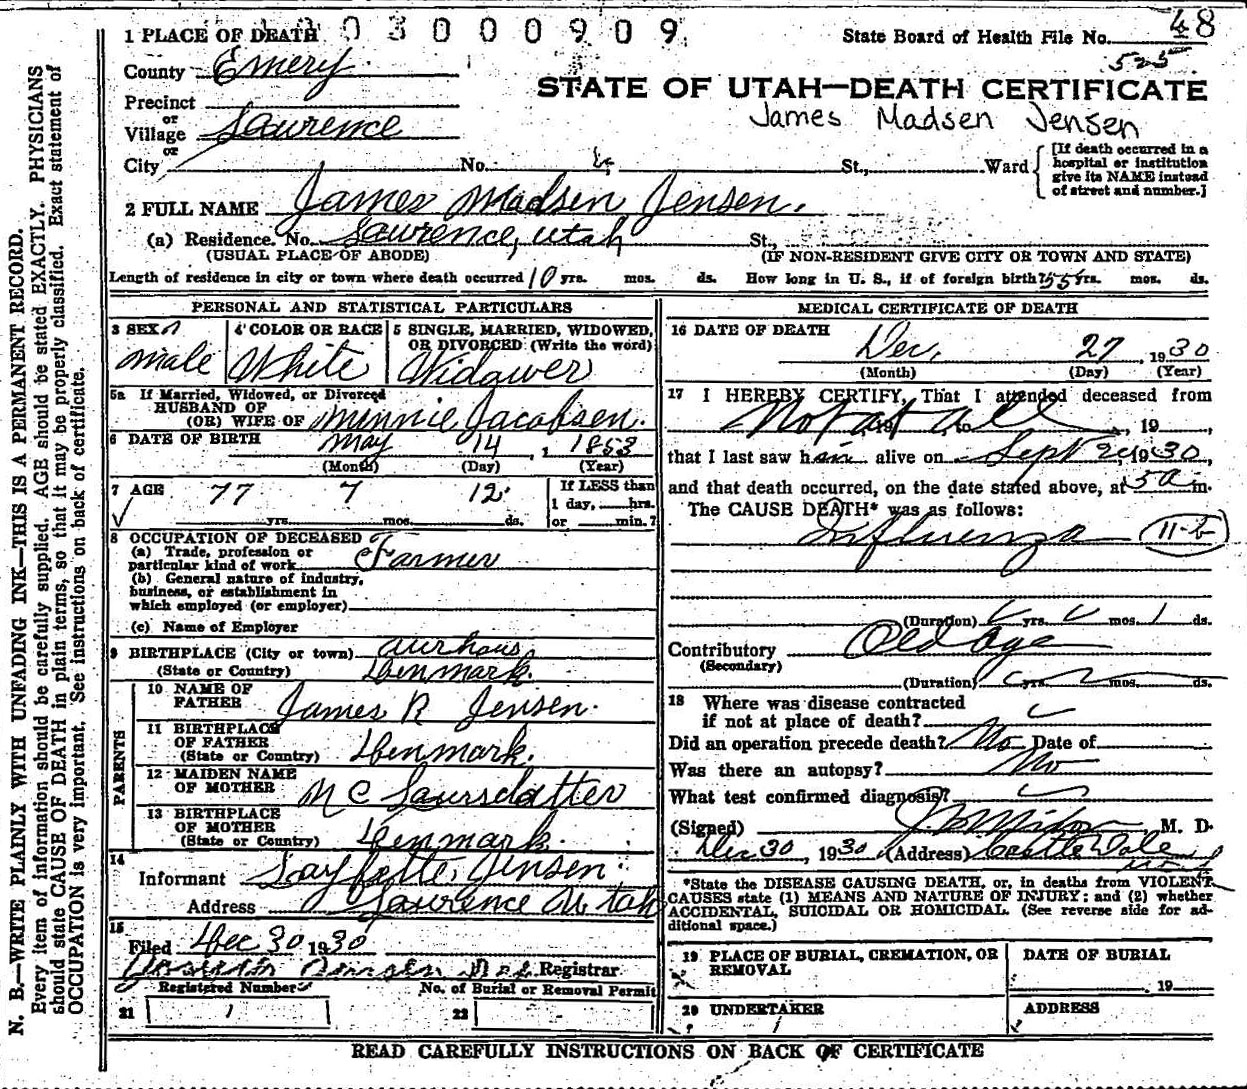 1 PLACE OF DEATH 03000909
State Board of Health File No. 48
County Emery
525
STATE OF UTAH—DEATH CERTIFICATE
Precinct
James Madsen Jensen
or
Village Lawrence
or
City No. St., Ward
[If death occurred in a
hospital or institution
give its NAME instead
of street and number.]
2 FULL NAME James Madsen Jensen.
(a) Residence. No. Lawrence, Utah St.,
(USUAL PLACE OF ABODE) (IF NON-RESIDENT GIVE CITY OR TOWN AND STATE)
Length of residence in city or town where death occurred 10 yrs. mos. ds. How long in U. S., if of foreign birth? 55 yrs. mos. ds.
PERSONAL AND STATISTICAL PARTICULARS
3 SEX 4 COLOR OR RACE 5 SINGLE, MARRIED, WIDOWED,
OR DIVORCED (Write the word)
Male White Widower
5a If Married, Widowed, or Divorced
HUSBAND OF
(OR) WIFE OF Minnie Jacobsen.
6 DATE OF BIRTH May 14, 1 1853
(Month) (Day) (Year)
7 AGE 77 7 12
yrs. mos. ds.
If LESS than
1 day, hrs.
or min.?
8 OCCUPATION OF DECEASED
(a) Trade, profession or
particular kind of work Farmer
(b) General nature of industry,
business, or establishment in
which employed (or employer)
(c) Name of Employer
9 BIRTHPLACE (City or town) Aurhous
(State or Country) Denmark.
PARENTS
10 NAME OF
FATHER James R Jensen.
11 BIRTHPLACE
OF FATHER
(State or Country) Denmark.
12 MAIDEN NAME
OF MOTHER M C Laursdatter
13 BIRTHPLACE
OF MOTHER
(State or Country) Denmark.
14
Informant Layfette Jensen.
Address Lawrence Utah
15
Filed Dec 30 1930
Registrar
Registered Number No. of Burial or Removal Permit
21 1 22 -
MEDICAL CERTIFICATE OF DEATH
16 DATE OF DEATH
Dec, 27, 1930
(Month) (Day) (Year)
17 I HEREBY CERTIFY, That I attended deceased from
Not at all, 19, to , 19 ,
that I last saw him alive on Sept 1930,
and that death occurred, on the date stated above, at 5a m.
The CAUSE DEATH* was as follows:
Influenza 11-b
(Duration) yrs. mos. 1 ds.
Contributory Old Age
(Secondary)
(Duration) yrs. mos. ds.
18 Where was disease contracted
if not at place of death?
Did an operation precede death? No Date of
Was there an autopsy? No
What test confirmed diagnosis?
(Signed) M. D.
Dec 30, 1930 (Address) Castle Dale
*State the DISEASE CAUSING DEATH, or, in deaths from VIOLENT
CAUSES state (1) MEANS AND NATURE OF INJURY; and (2) whether
ACCIDENTAL, SUICIDAL OR HOMICIDAL. (See reverse side for ad-
ditional space.)
19 PLACE OF BURIAL, CREMATION, OR
REMOVAL
DATE OF BURIAL
19
20 UNDERTAKER
ADDRESS
READ CAREFULLY INSTRUCTIONS ON BACK OF CERTIFICATE
N. B.—WRITE PLAINLY WITH UNFADING INK—THIS IS A PERMANENT RECORD.
Every item of information should be carefully supplied. AGE should be stated EXACTLY. PHYSICIANS
should state CAUSE OF DEATH in plain terms, so that it may be properly classified. Exact statement of
OCCUPATION is very important. See instructions on back of certificate.